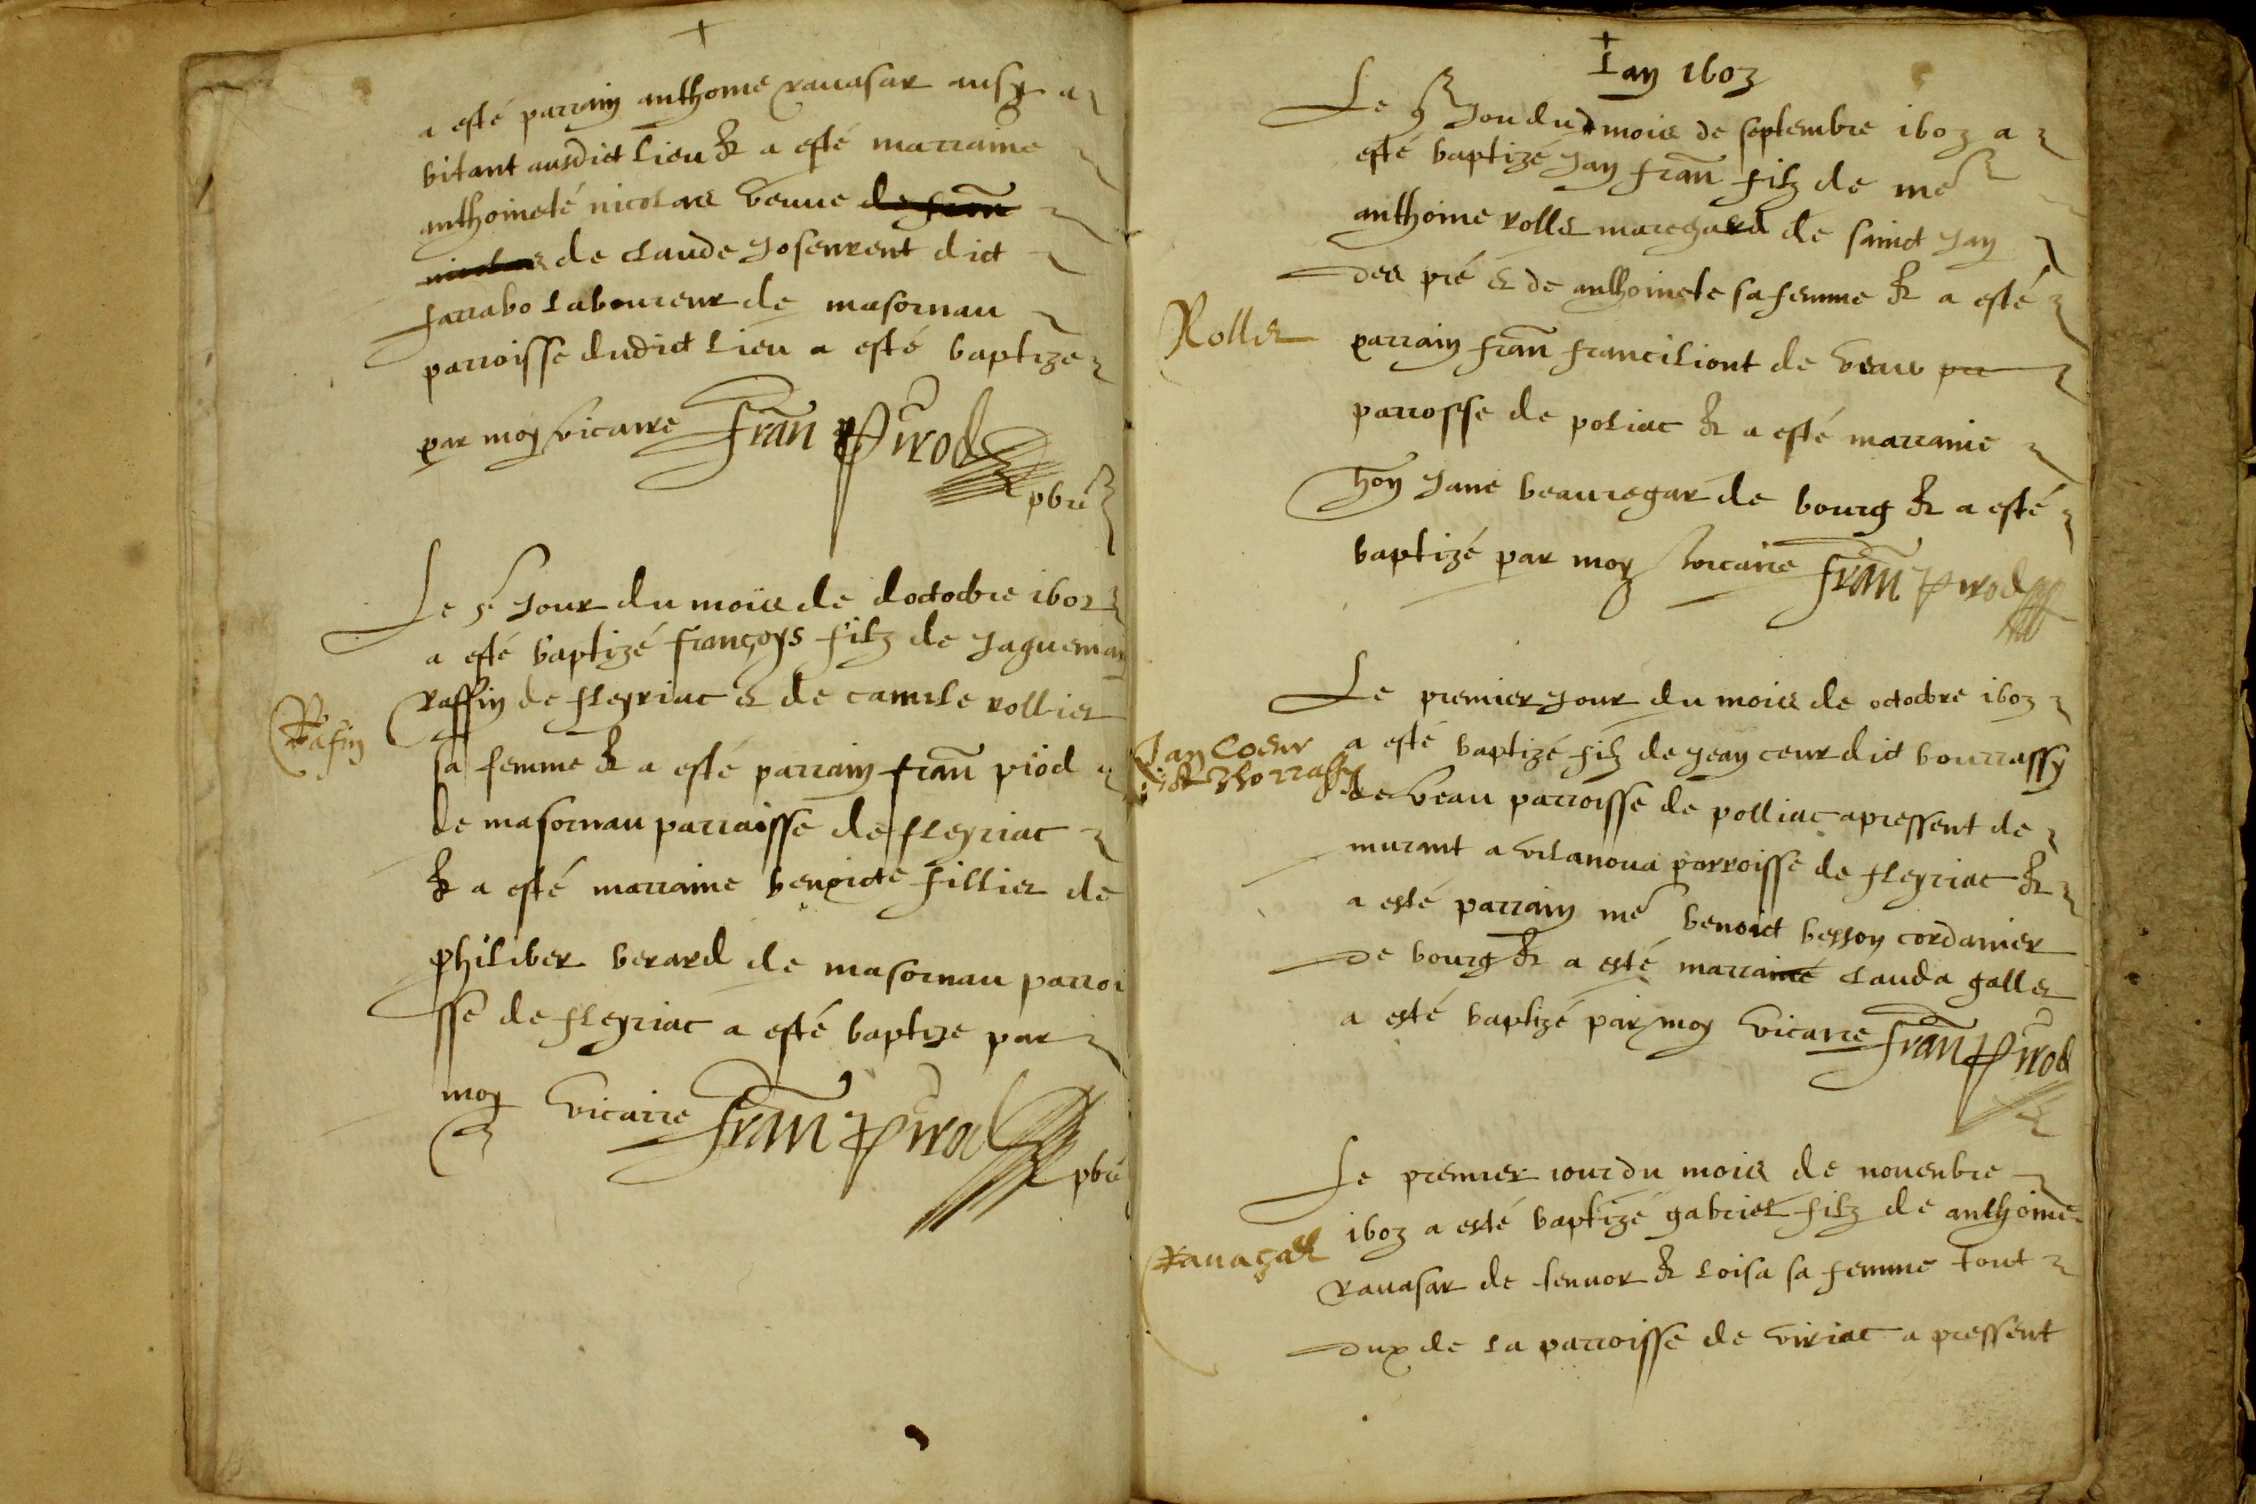 a esté parrain anthoine ravasar ausy a
bitant ausdict lieu & a esté marraine
anthoinete nicolas veuve de fran
nicolas de claude Josenrent dict
farrabo laboureur de masornau
parroisse dudict lieu a esté baptize
par moy vicaire fran pirod
pbre
Le 5 Jour du mois de doctobre 1602
a esté baptizé françoys filz de Jaguemin
Rafin
raffin de fleyriac & de camile rollier
sa femme & a esté parrain fran piod
de masornau parraisse de fleyriac
& a esté marraine benoicte fillier de
philiber berard de masornau parroi
sse de fleyriac a esté baptize par
moy vicaire fran pirod
pbre
Lan 1603
Le Jou dud mois de septembre 1603 a
esté baptizé Jan fran filz de me
anthoine rolle de sainct Jan
des pré & de anthoinete sa femme & a esté
Rolle
parrain fran franciliont de veau par
parrosse de poliac & a esté marraine
hon Jane beauregar de bourg & a esté
baptizé par moy vicaire fran pirod
Le premier Jour du mois de octobre 1603
Jan Coeur
a esté baptizé filz de Jean ceur dict bourrassy
dict Bhorrassy
de veau parroisse de polliac apressent de
murant a vilanova parroisse de fleyriac &
a esté parrain me benoict besson cordanier
de bourg & a esté marraine clauda galle
a esté baptizé par moy vicaire fran pirod
Le premier iour du mois de novenbre
1603 a esté baptizé gabriel filz de anthoine
Ravaçal
ravasar de senuor & loisa sa femme tout
dux de la parroisse de viriac a pressent